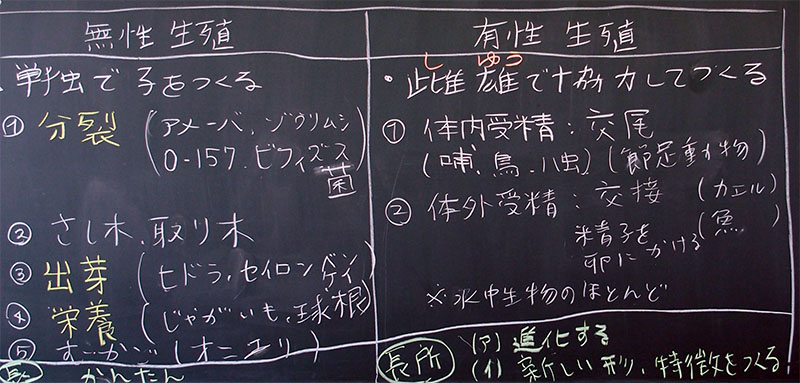 無性生殖
・単独で子をつくる
① 分裂 (アメーバ、ゾウリムシ
O-157、ビフィズス
菌)
② さし木、取り木
③ 出芽 (ヒドラ、セイロンベンケイ)
④ 栄養 (じゃがいも、球根)
⑤ むかご (オニユリ)
かんたん
有性生殖
しゆう
・雌雄で協力してつくる
① 体内受精：交尾
(哺、鳥、ハ虫)(節足動物)
② 体外受精：交接 (カエル)
精子を (魚)
卵にかける
※水中生物のほとんど
長所 (ア) 進化する
(イ) 新しい形、特徴をつくる